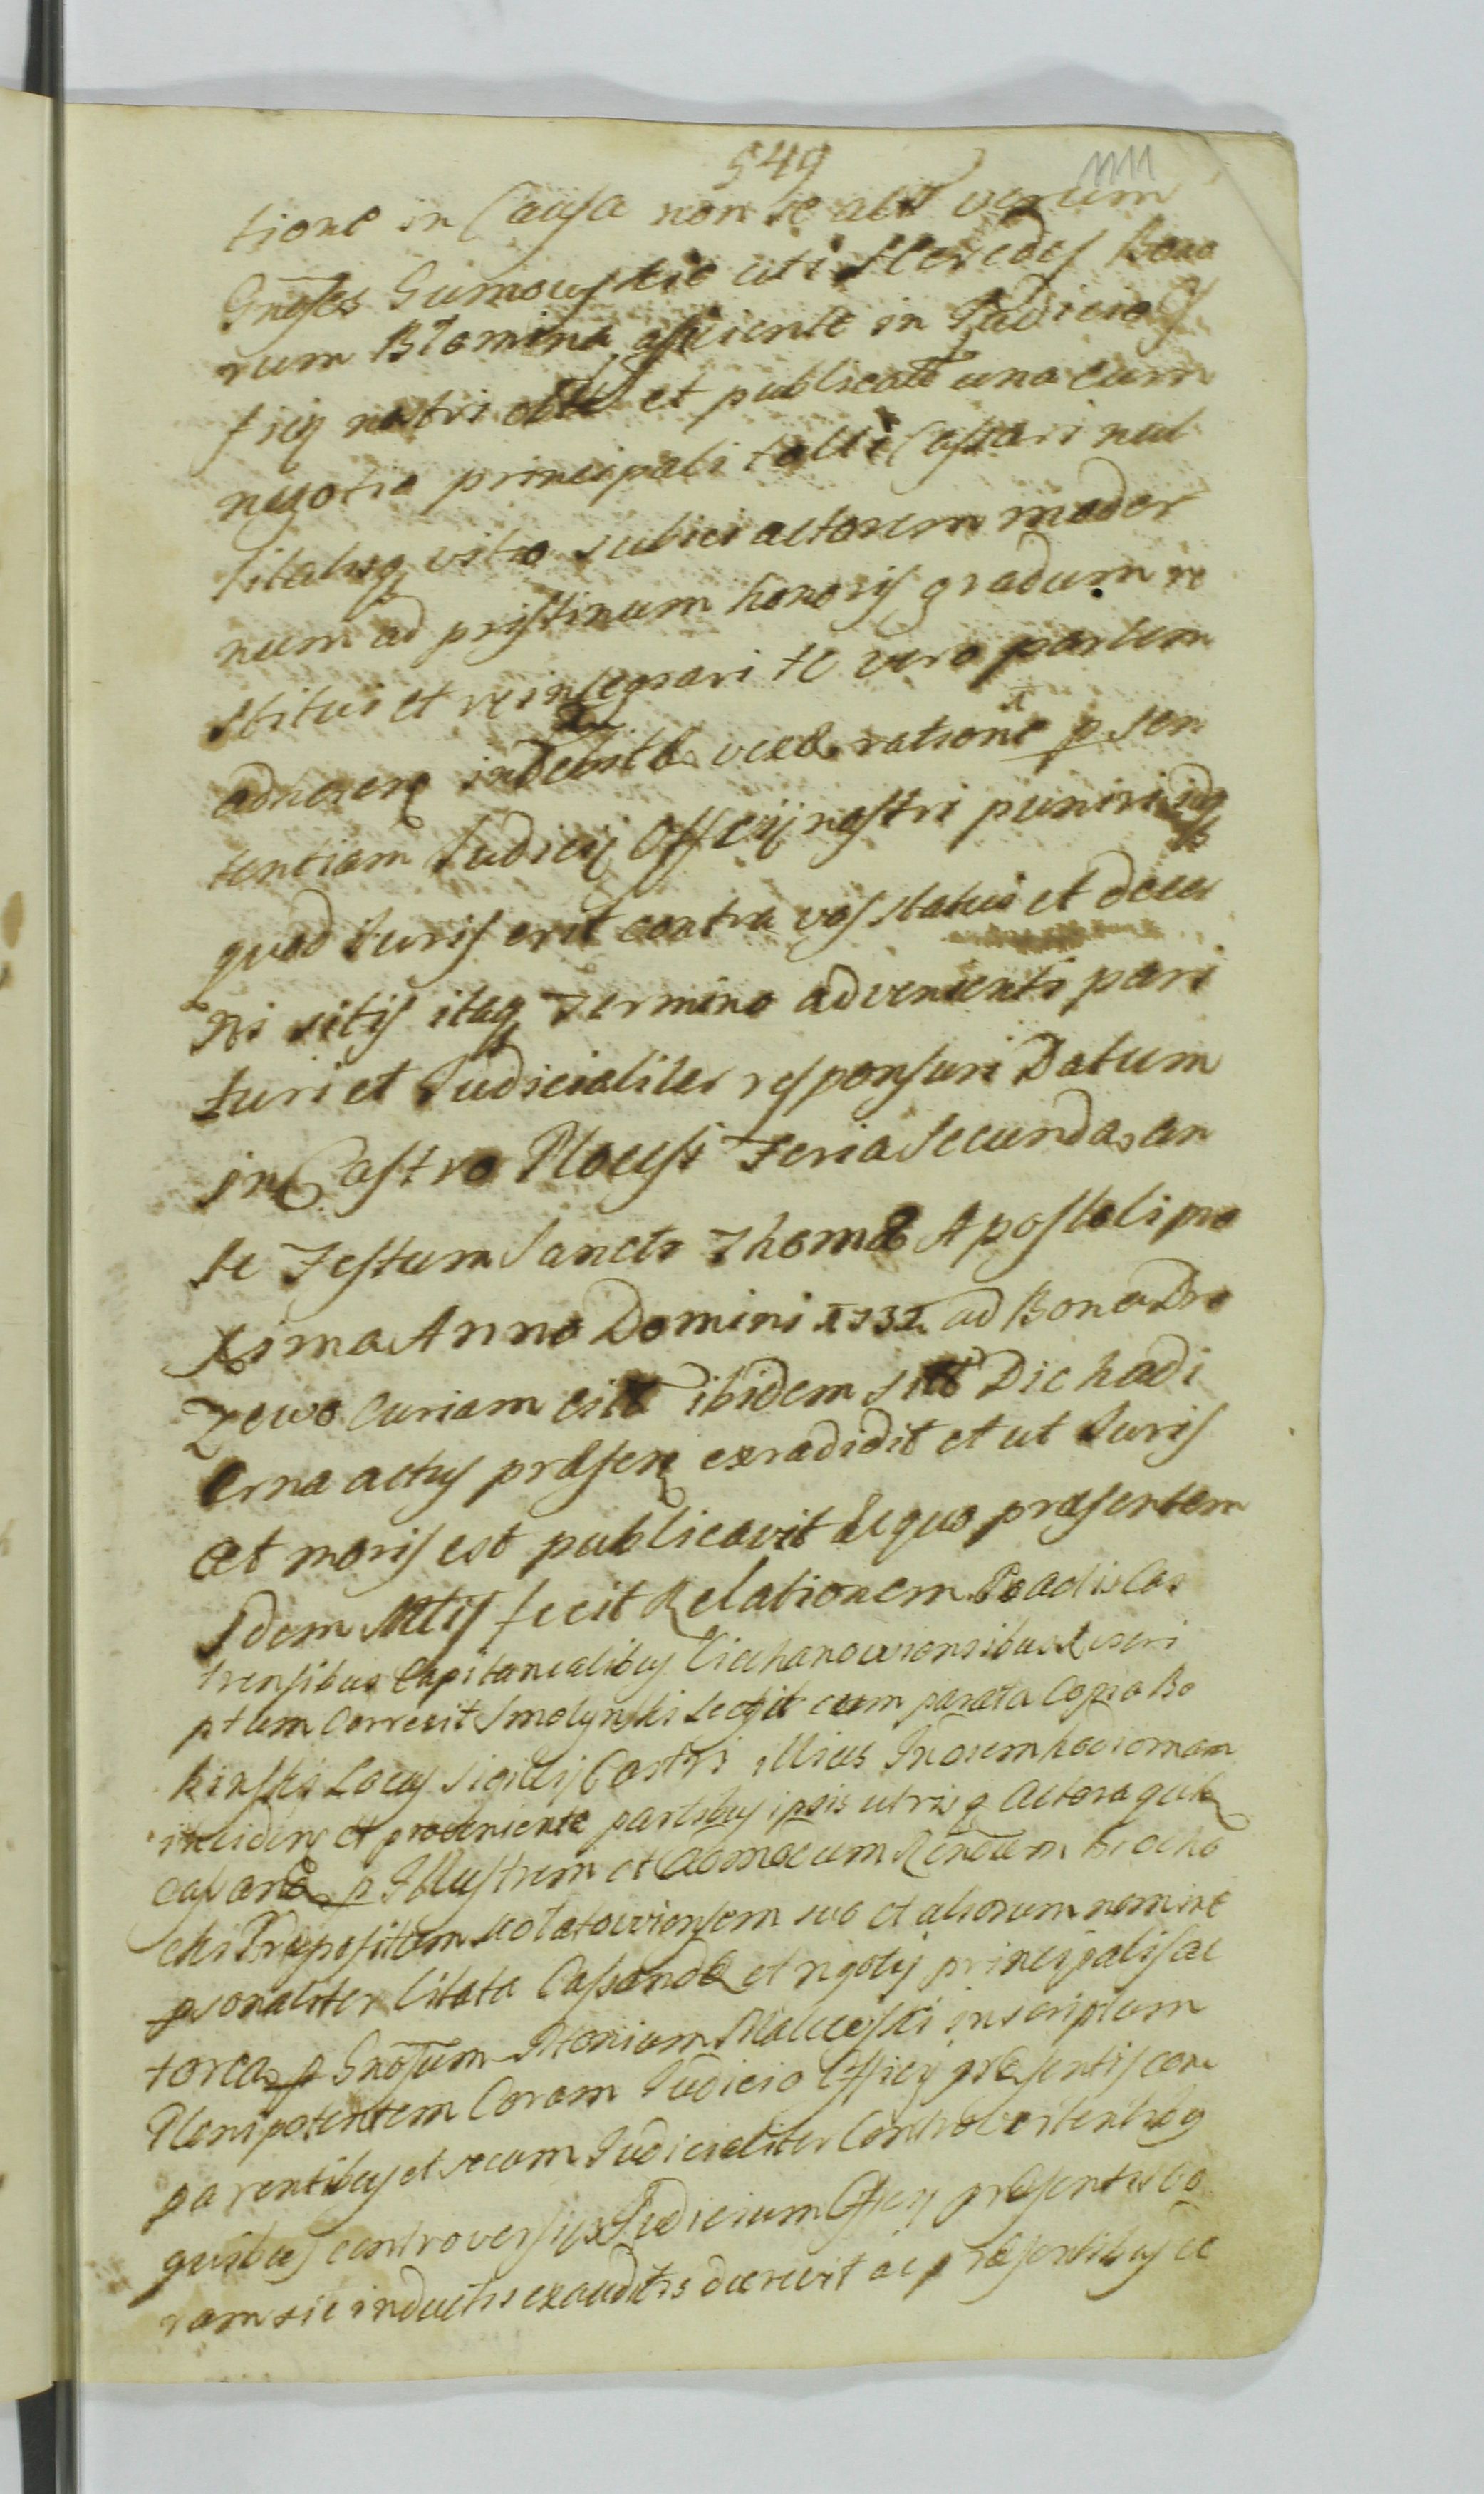 549
1111
tione in Causa non se alt verum
Gnosos Gumowskie uti Heredes Bono
rum Blomino afficiente in Judicio Of
ficij nostri obtt et publicato una cum
negotio principali tolli Cassari nul
litatisq vitio subici actorem moder
num ad pristinum honoris gradum re
stitui et reintegrari te vero partem
adhaeren indebitæ vexæ ratione p sen
tentiam Judicij Officij nostri puniri idq
quod Juris erit contra vos statui et decer
ni sitis itaq Termino advenienti pari
turi et Judicialiter responsuri Datum
in Castro Plocensi Feria Secunda an
te Festum Sancti Thomæ Apostoli pro
xima Anno Domini 1732 ad Bona Dro
zewo Curiam ibidem sitt Die hodi
erna actus præsen exradidit et ut Juris
et moris est publicavit de quo præsentem
Idem Mtis fecit Relationem Ex actis Cas
trensibus Capitanealibus Ciechanoviensibus Rescri
ptum Correxit Smolynski Legit cum parata Copia Bo
kinski Locus Sigilli Castri illius In orem hodiernam
inciden et proveniente partibus ipsis utrisq Actorea quid
casan p Illustrem et Admodum Rndum Brocho
cki Præpositum suo et aliorum nomine
psonaliter Citata Cassandæ et negotij principalis ac
torea p Gnosum Antonium inscriptum
Plenipotentem Coram Judicio Officij præsentis com
parentibus et secum Judicialiter Controvertentibq
quibus controversijs Judicium Officij præsentis co
ram sic inductis exauditis decrevit ac præsentibus de